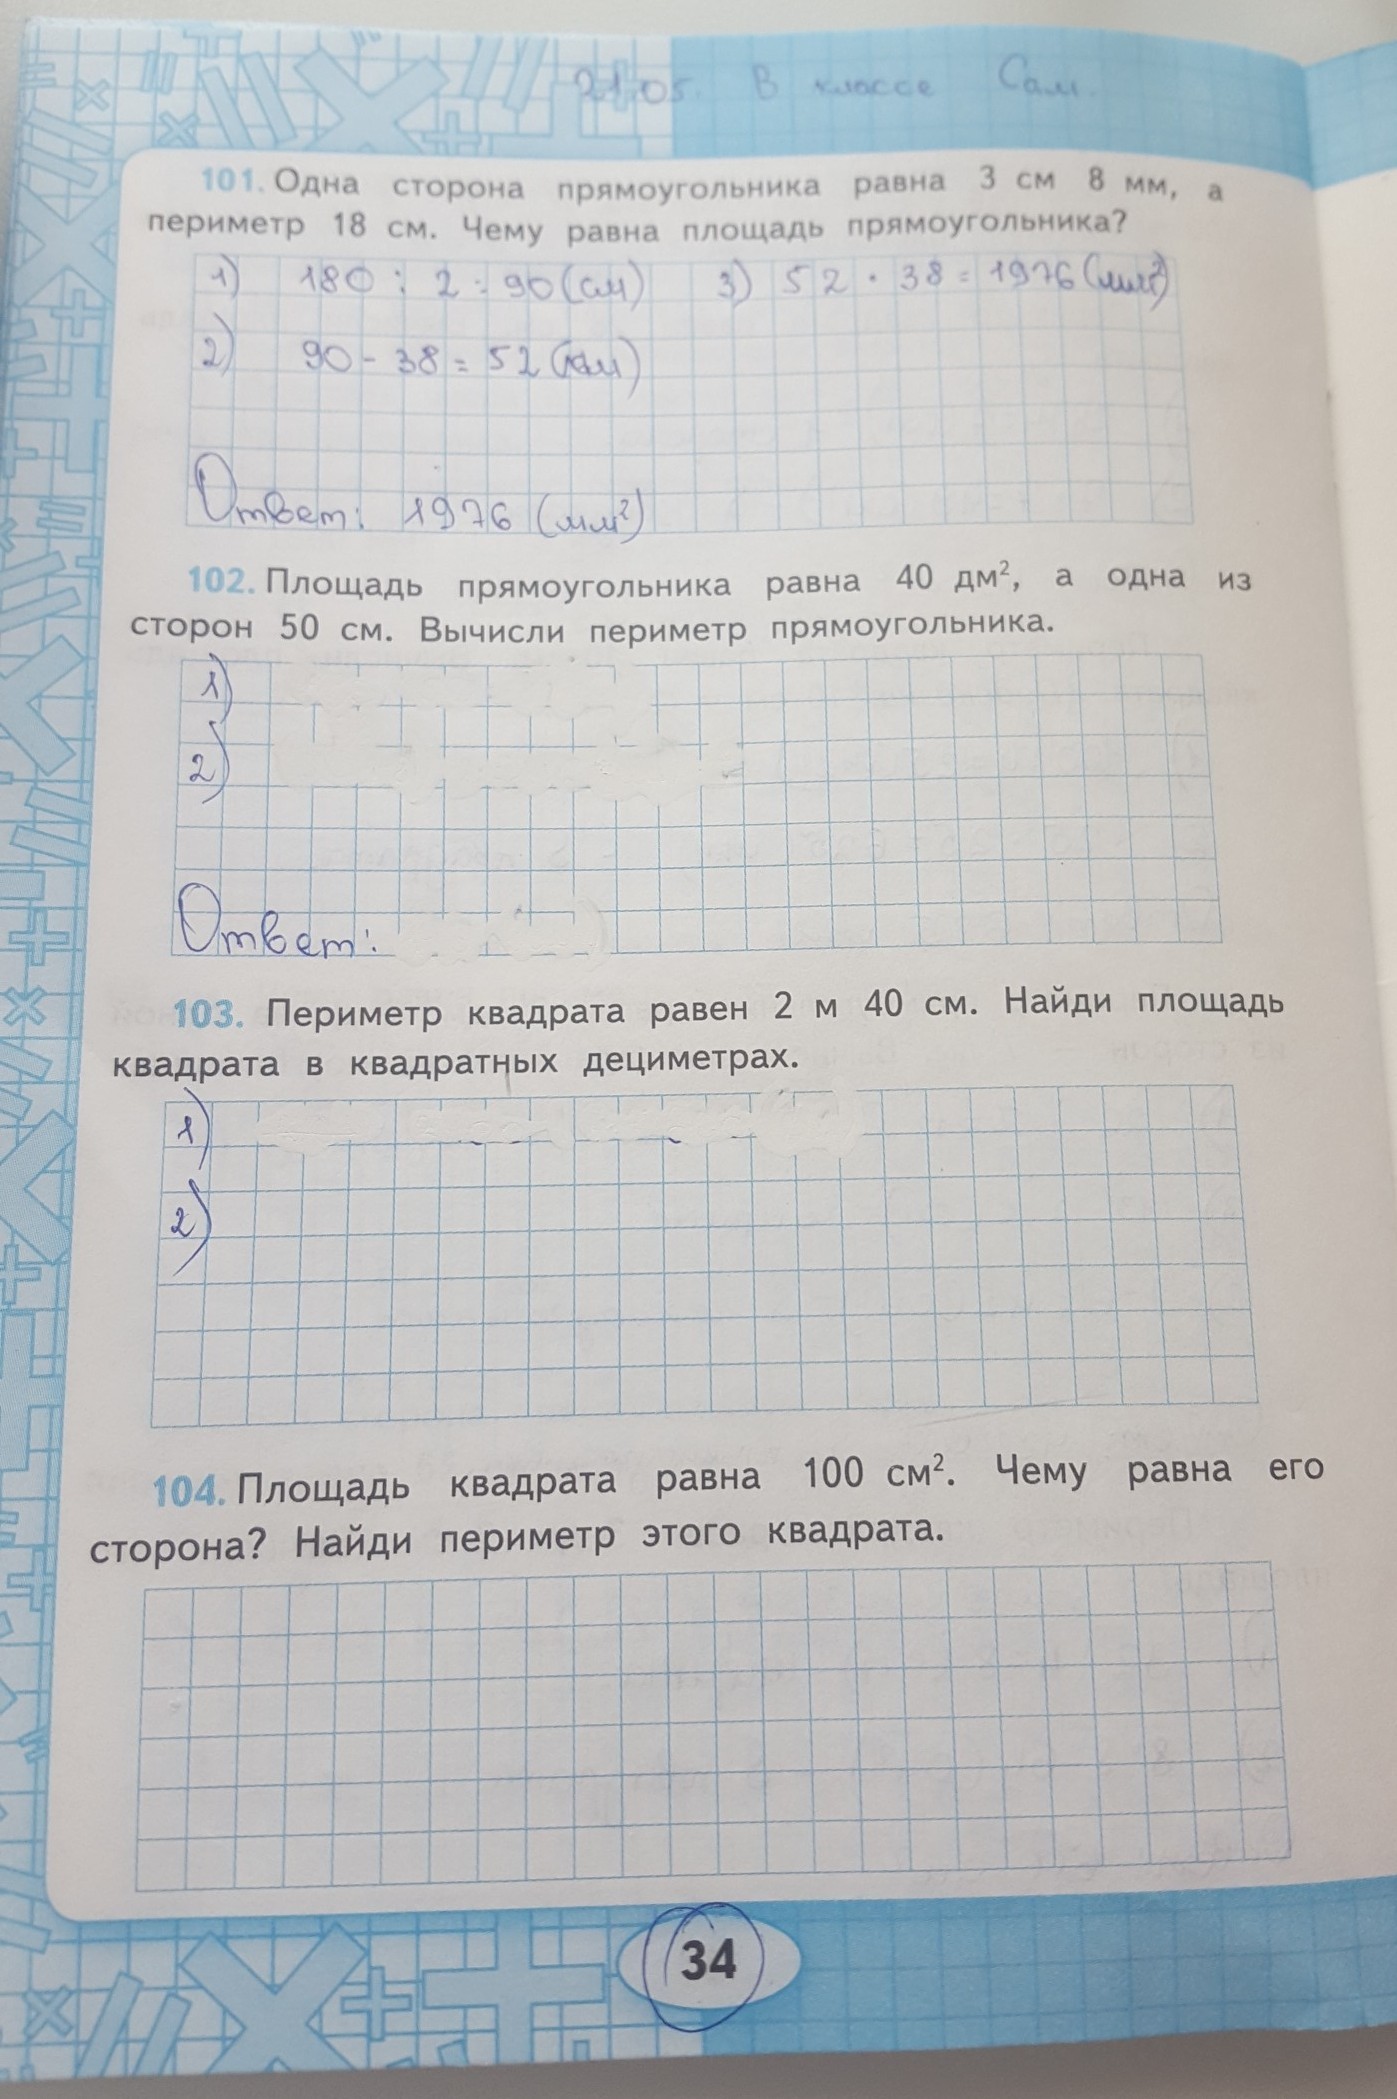 21.05. В классе Сам.
101. Одна сторона прямоугольника равна 3 см 8 мм, а
периметр 18 см. Чему равна площадь прямоугольника?
1) 180 : 2 = 90 (см) 3) 52 · 38 = 1976 (мм²)
2) 90 - 38 = 52 (см)
Ответ: 1976 (мм²)
102. Площадь прямоугольника равна 40 дм², а одна из
сторон 50 см. Вычисли периметр прямоугольника.
1)
2)
Ответ:
103. Периметр квадрата равен 2 м 40 см. Найди площадь
квадрата в квадратных дециметрах.
1)
2)
104. Площадь квадрата равна 100 см². Чему равна его
сторона? Найди периметр этого квадрата.
34